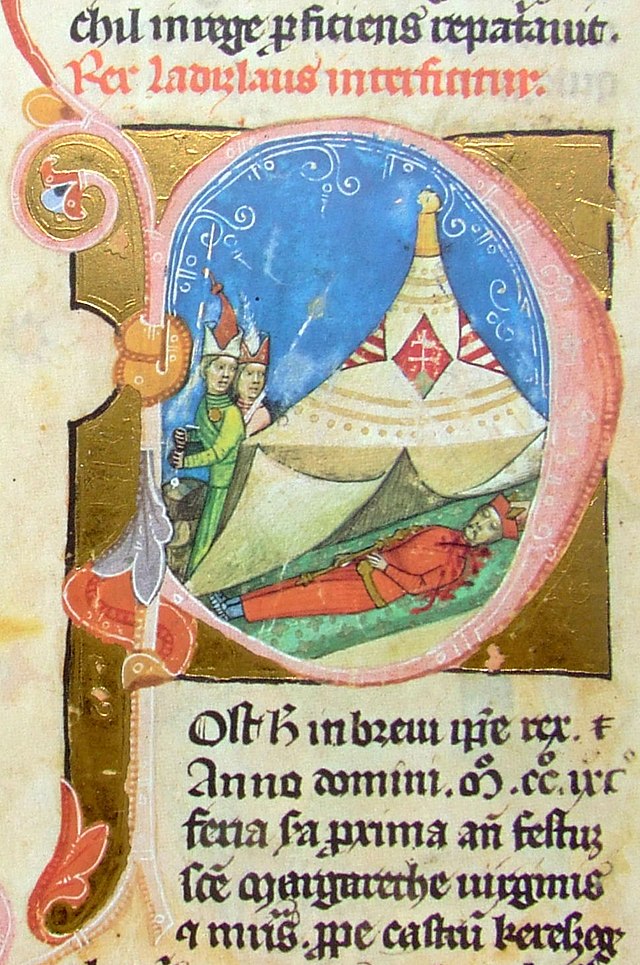 chil in rege p̱ficiens repat̃auit.
Rex ladizlaus interficitur.
Post h̄ in breui ip̃e rex. ⁊
Anno domini. M̊. cc̊. ixc
feria s̃a p̱xima an̄ festuz
sc̄e Margarethe uirginis
⁊ mr̃is. p̱pe castrū kerezeg